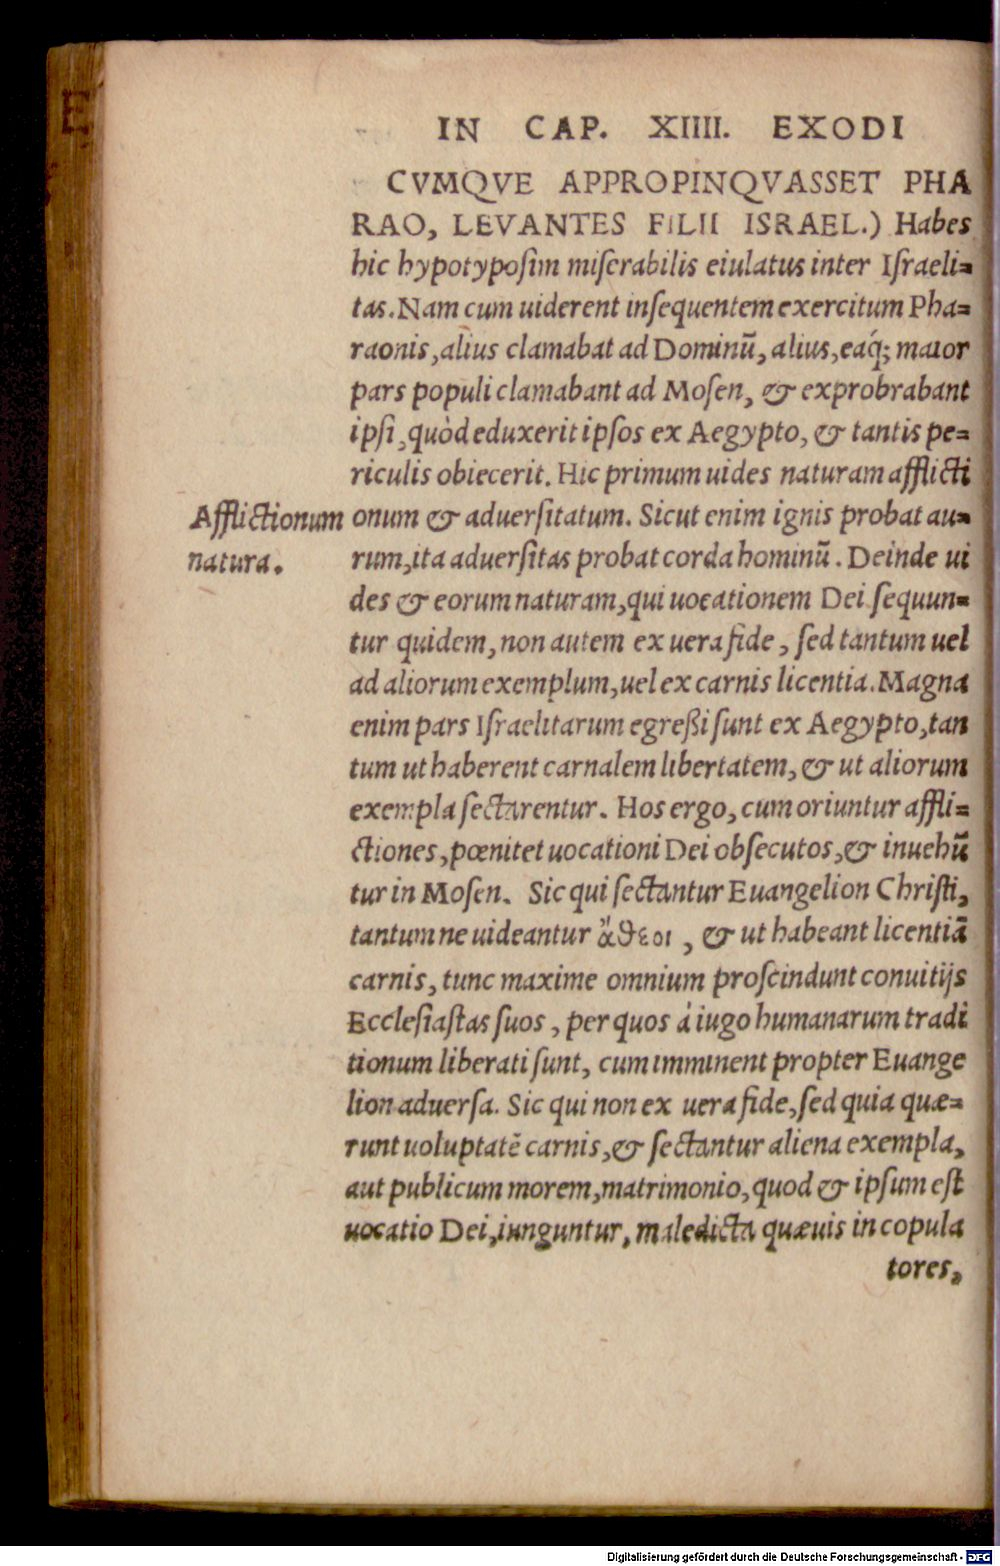 IN CAP. XIIII. EXODI
CVMQVE APPROPINQVASSET PHA
RAO, LEVANTES FILII ISRAEL.) Habes
hic hypotyposim miserabilis eiulatus inter Israeli-
tas. Nam cum uiderent insequentem exercitum Pha-
raonis, alius clamabat ad Dominũ, alius, eaq́; maior
pars populi clamabant ad Mosen, & exprobrabant
ipsi, quòd eduxerit ipsos ex Aegypto, & tantis pe-
riculis obiecerit. Hic primum uides naturam afflicti
Afflictionum
natura.
onum & aduersitatum. Sicut enim ignis probat au-
rum, ita aduersitas probat corda hominũ. Deinde ui
des & eorum naturam, qui uocationem Dei sequun-
tur quidem, non autem ex uera fide, sed tantum uel
ad aliorum exemplum, uel ex carnis licentia. Magna
enim pars Israelitarum egreßi sunt ex Aegypto, tan
tum ut haberent carnalem libertatem, & ut aliorum
exempla sectarentur. Hos ergo, cum oriuntur affli-
ctiones, pœnitet uocationi Dei obsecutos, & inuehũ
tur in Mosen. Sic qui sectantur Euangelion Christi,
tantum ne uideantur ἄθεοι, & ut habeant licentiã
carnis, tunc maxime omnium proscindunt conuitijs
Ecclesiastas suos, per quos à iugo humanarum tradi
tionum liberati sunt, cum imminent propter Euange
lion aduersa. Sic qui non ex uera fide, sed quia quæ-
runt uoluptatẽ carnis, & sectantur aliena exempla,
aut publicum morem, matrimonio, quod & ipsum est
uocatio Dei, iunguntur, maledicta quæuis in copula
tores,
Digitalisierung gefördert durch die Deutsche Forschungsgemeinschaft - DFG